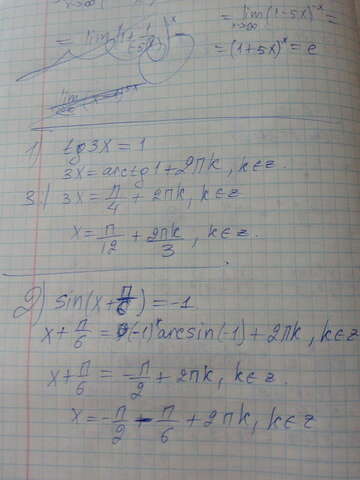 = lim (1-5x)^-x =
x→∞
= (1+5x)^x = e
1) tg3x = 1
3x = arctg1 + 2πk, k∈z.
3 / 3x = π/4 + 2πk, k∈z
x = π/12 + 2πk/3, k∈z.
2) sin(x+π/6) = -1
x + π/6 = (-1)^k arcsin(-1) + 2πk, k∈z
x + π/6 = -π/2 + 2πk, k∈z.
x = -π/2 - π/6 + 2πk, k∈z